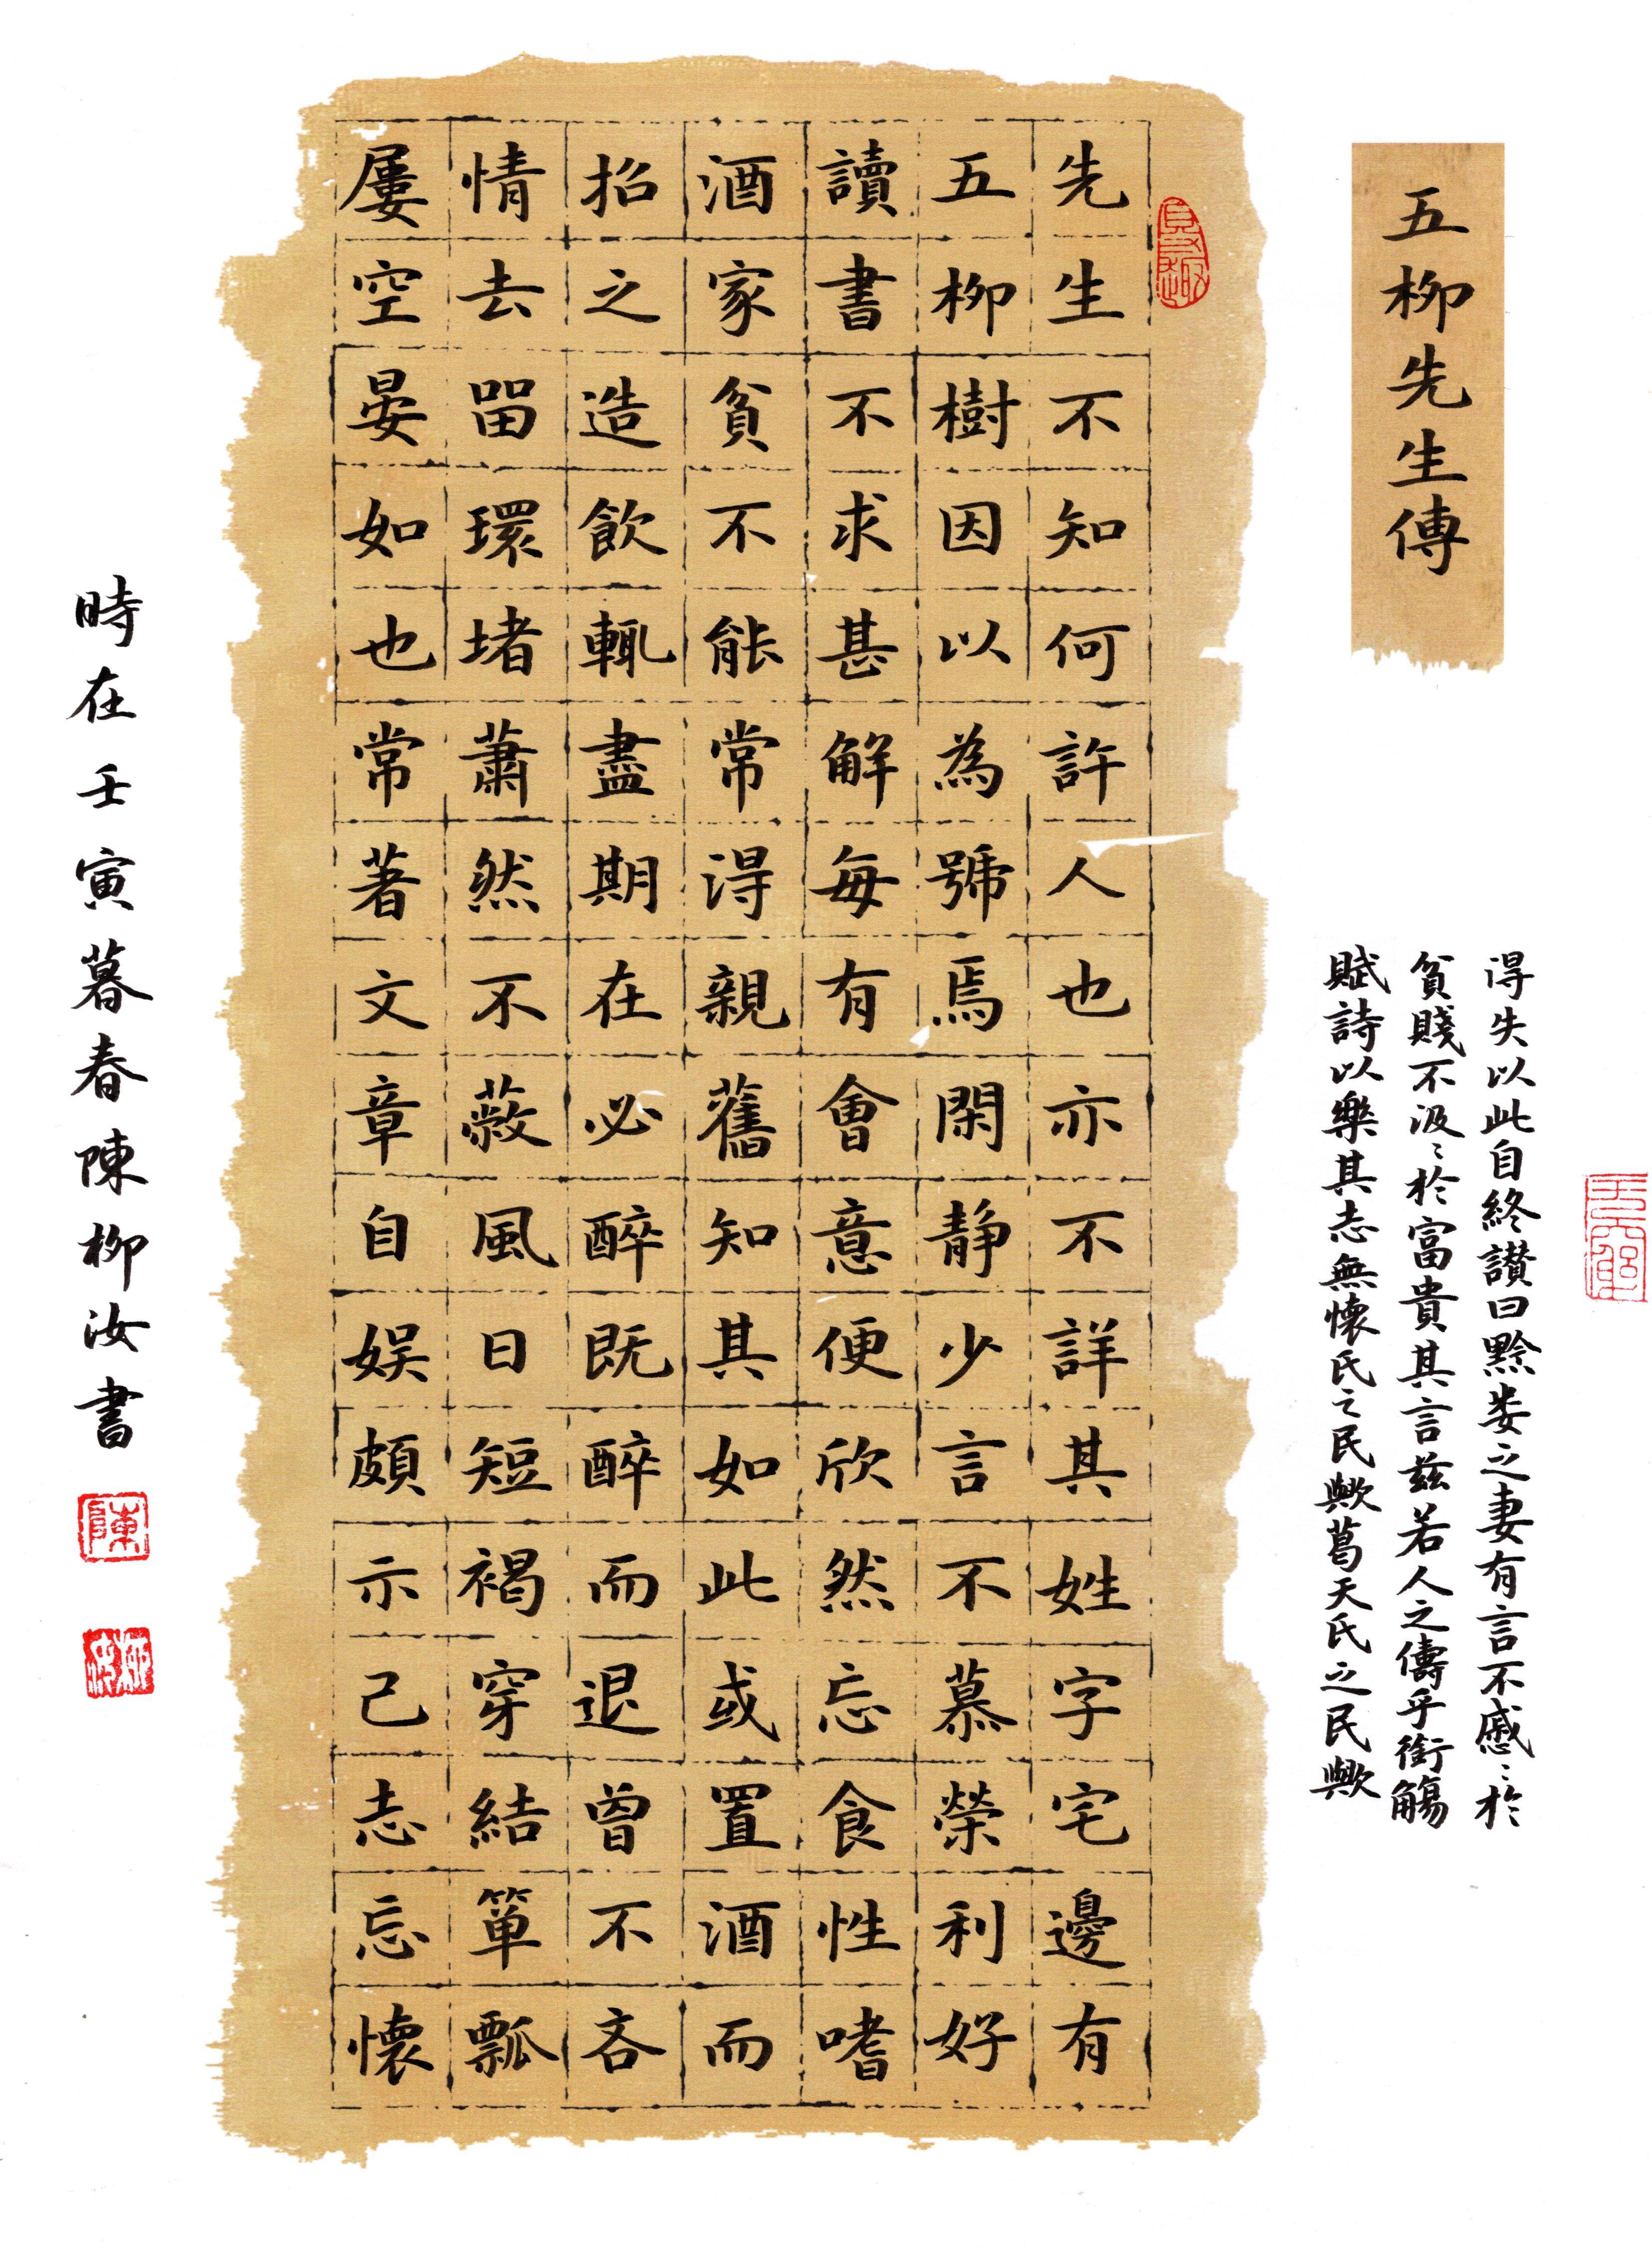 五柳先生傳
先生不知何許人也亦不詳其姓字宅邊有
五柳樹因以為號焉閑静少言不慕榮利好
讀書不求甚解每有會意便欣然忘食性嗜
酒家貧不能常得親舊知其如此或置酒而
招之造飲輒盡期在必醉既醉而退曾不吝
情去留環堵蕭然不蔽風日短褐穿結簞瓢
屢空晏如也常著文章自娱頗示己志忘懷
得失以此自終讃曰黔婁之妻有言不戚〻於
貧賤不汲〻於富貴其言兹若人之儔乎銜觴
賦詩以樂其志無懷氏之民歟葛天氏之民歟
時在壬寅暮春陳柳汝書
陳
柳汝